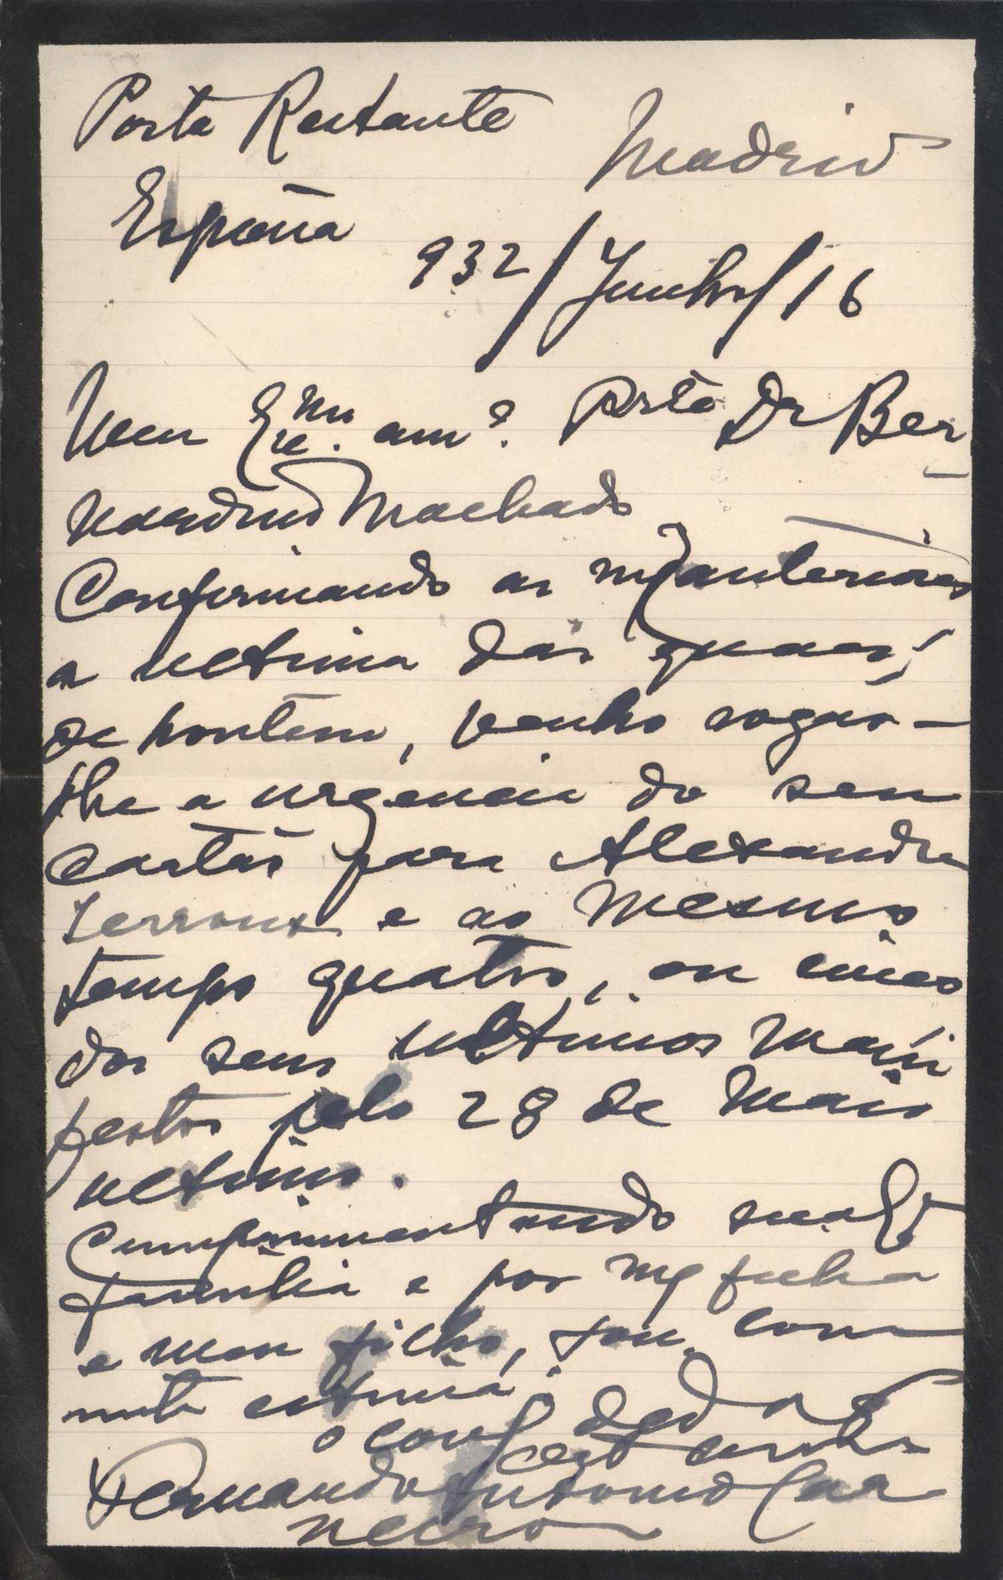 Posta Restante
Madrid
España
932/Junho/16
Meu Exmo. amo. Dr Ber
nardino Machado
Confirmando as mas anteriores
a ultima das quaes,
de hontem, venho rogar-
lhe a urgencia do seu
cartão para Alexandre
Lerroux e ao mesmo
tempo quatro, ou cinco
dos seus ultimos mani
festos pelo 28 de Maio
ultimo.
Cumprimentando sua Exa
familia e por ma filha
e meu filho, sou, com
mta estima,
o corrg ded
Fernando Antonio Car
neiro